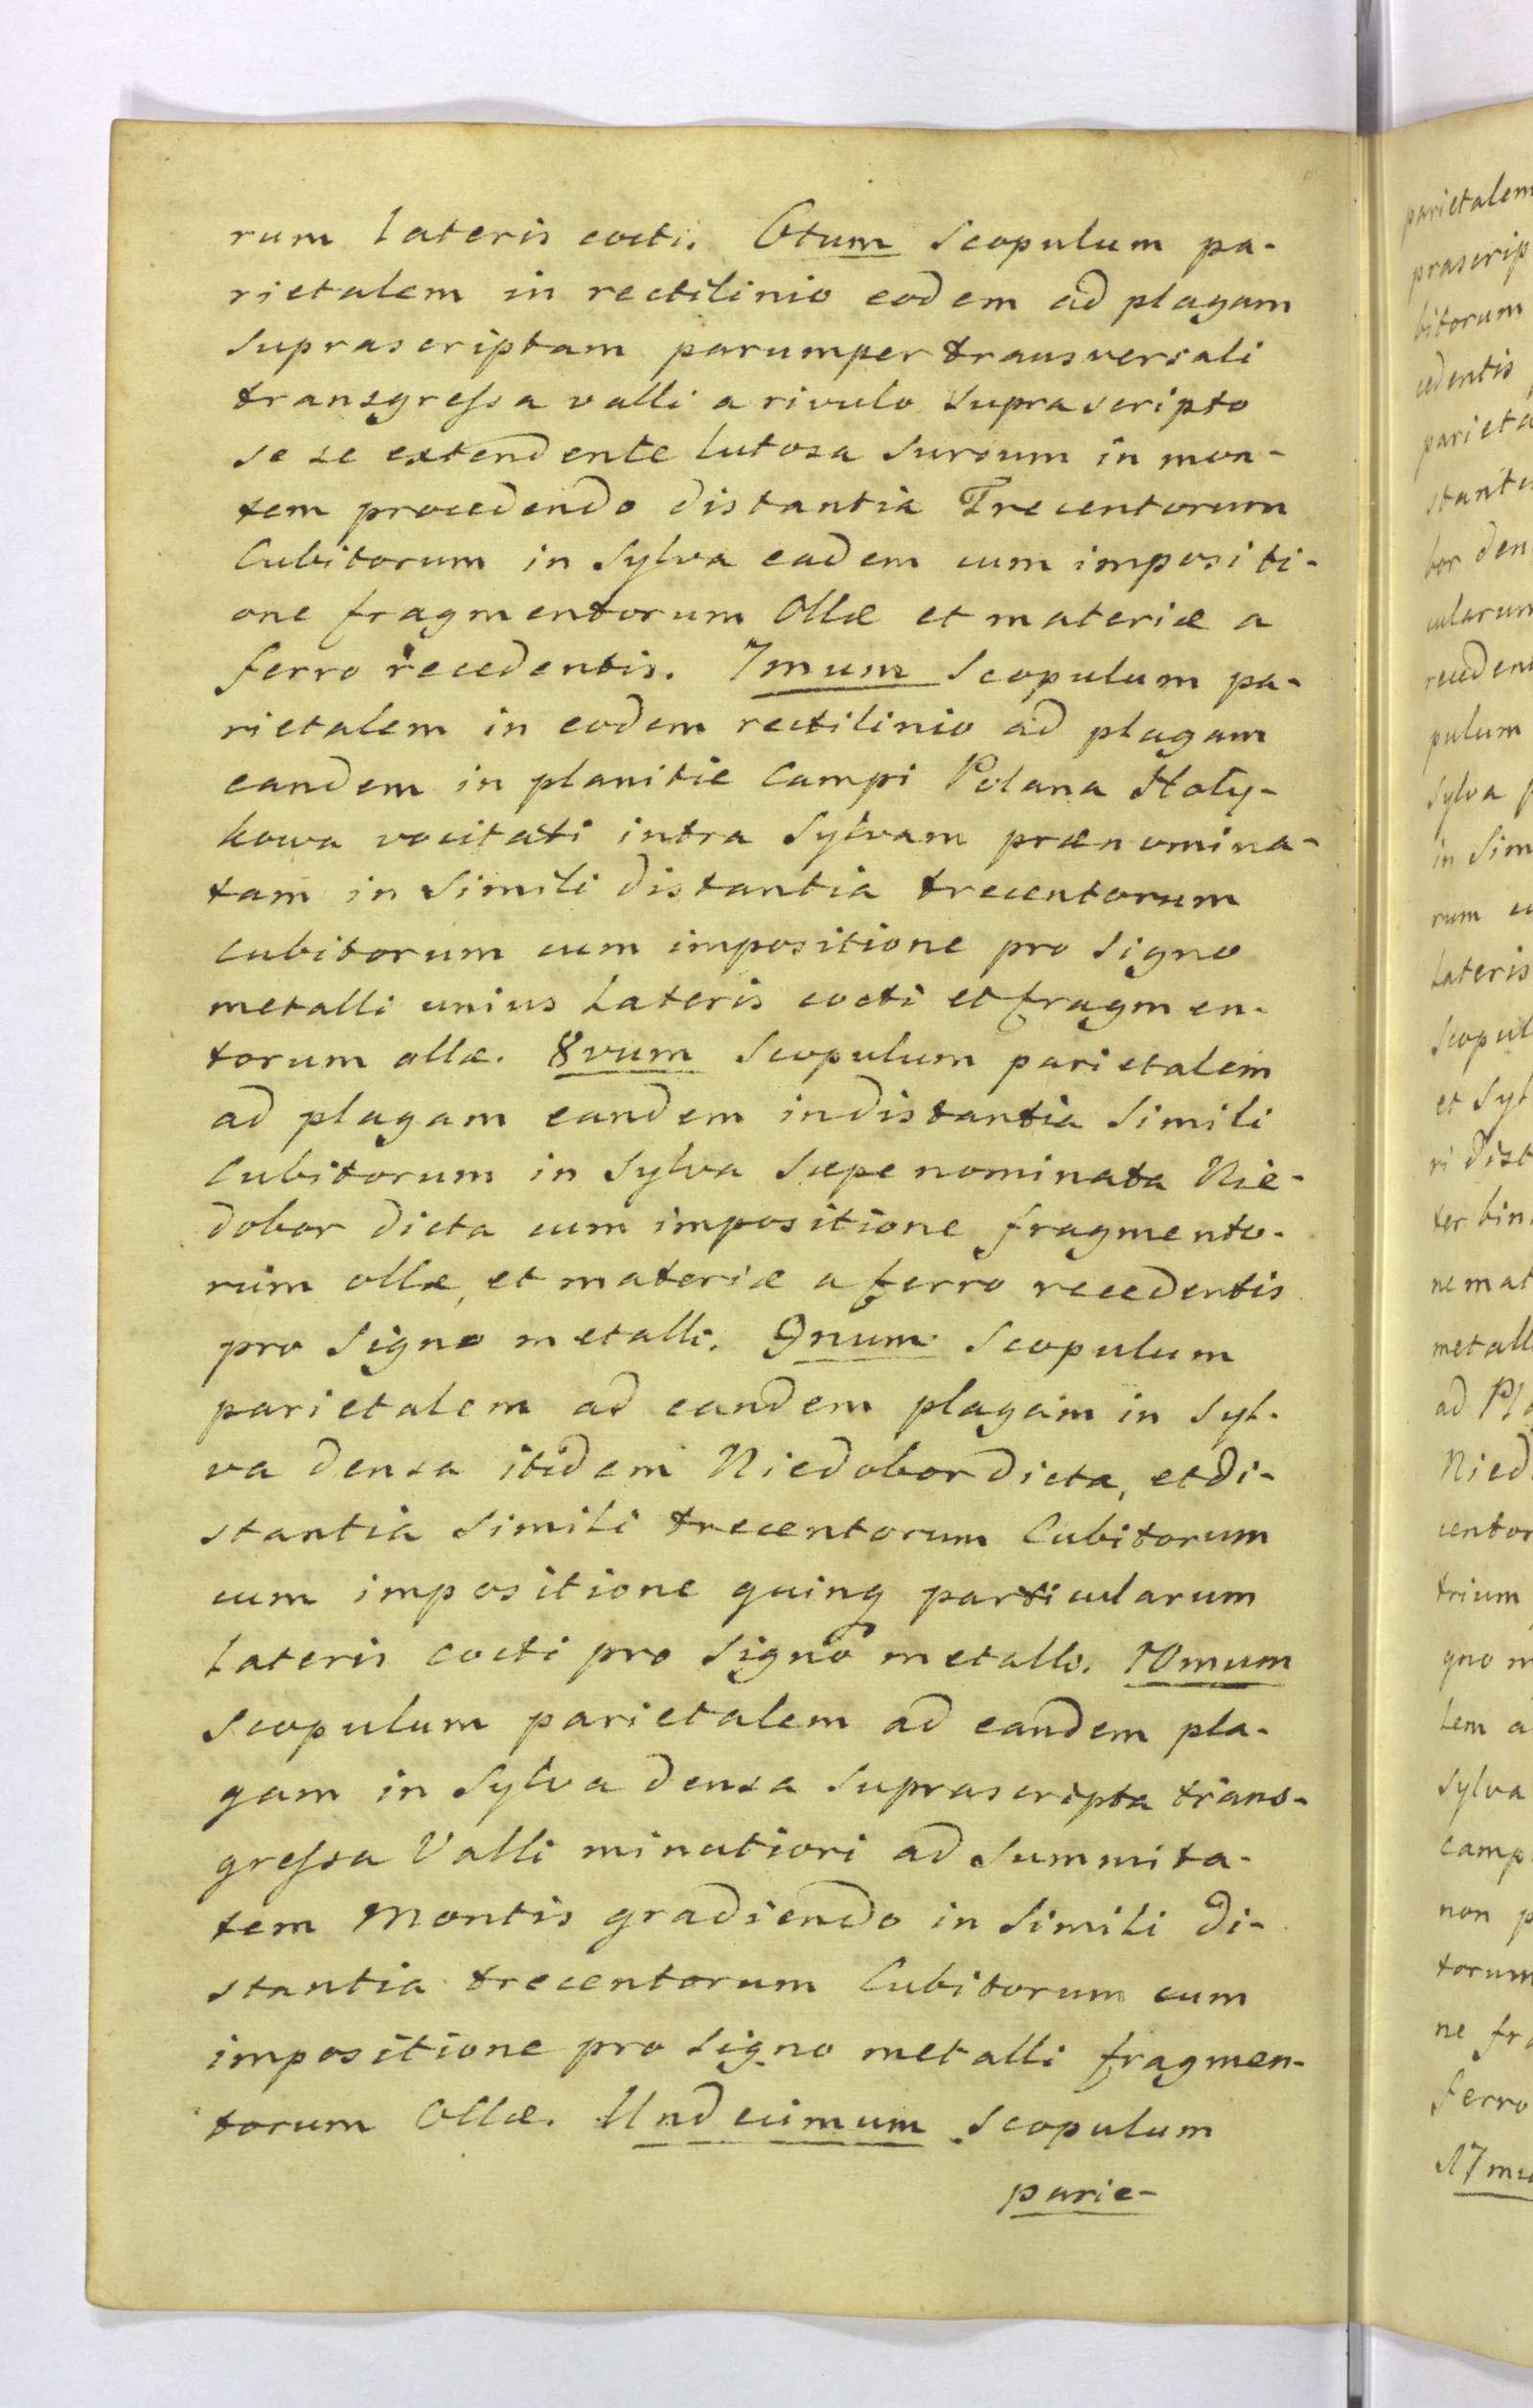 rum Lateris cocti. 6tum Scopulum pa-
rietalem in rectilinio eodem ad plagam
supraseriptam parumper transversali
transgressa valli a rivulo supra scripto
se se extendente lutosa sursum in mon-
tem procedendo distantia Trecentorum
Cubitorum in Sylva eadem cum impositi-
one fragmentorum Ollæ et materiæ a
ferro recedentis. 7mum Scopulum pa-
rietalem in eodem rectilinio ad plagam
eandem in planitie Campi Polana Hoły-
kowa vocitati intra Sylvam prænomina-
tam in Simili distantia trecentorum
cubitorum cum impositione pro Signo
metalli unius Lateris cocti et fragmen-
torum ollæ. 8vum Scopulum parietalem
ad plagam eandem in distantia Simili
Cubitorum in Sylva sæpe nominata Nie-
dobor dicta cum impositione fragmento-
rum ollæ, et materiæ a ferro recedentis
pro Signo metalli. 9num Scopulum
parietalem ad eandem plagam in Syl-
va densa itidem Niedobor dicta, et di-
stantia Simili trecentorum Cubitorum
cum impositione quinq particularum
Lateris cocti pro Signo metalli. 10mum
Scopulum parietalem ad eandem pla-
gam in Sylva densa suprascripta trans-
gressa Valli minutiori ad Summita-
tem Montis gradiendo in Simili di-
stantia trecentorum Cubitorum cum
impositione pro Signo metalli fragmen-
torum Ollæ. Undecimum Scopulum
parie-
parietalem
prascrip
bitorum
cedentis
parieta
bor den
cularum
pulum
Sylva p
in Sim
rum
Lateris
Scopul
et Syl
ri dist
ter bin
ne mat
metall
ad Pla
Nied
centor
trium
gno m
lem a
Sylva
camp
non p
torum
ne fra
ferro
17mu